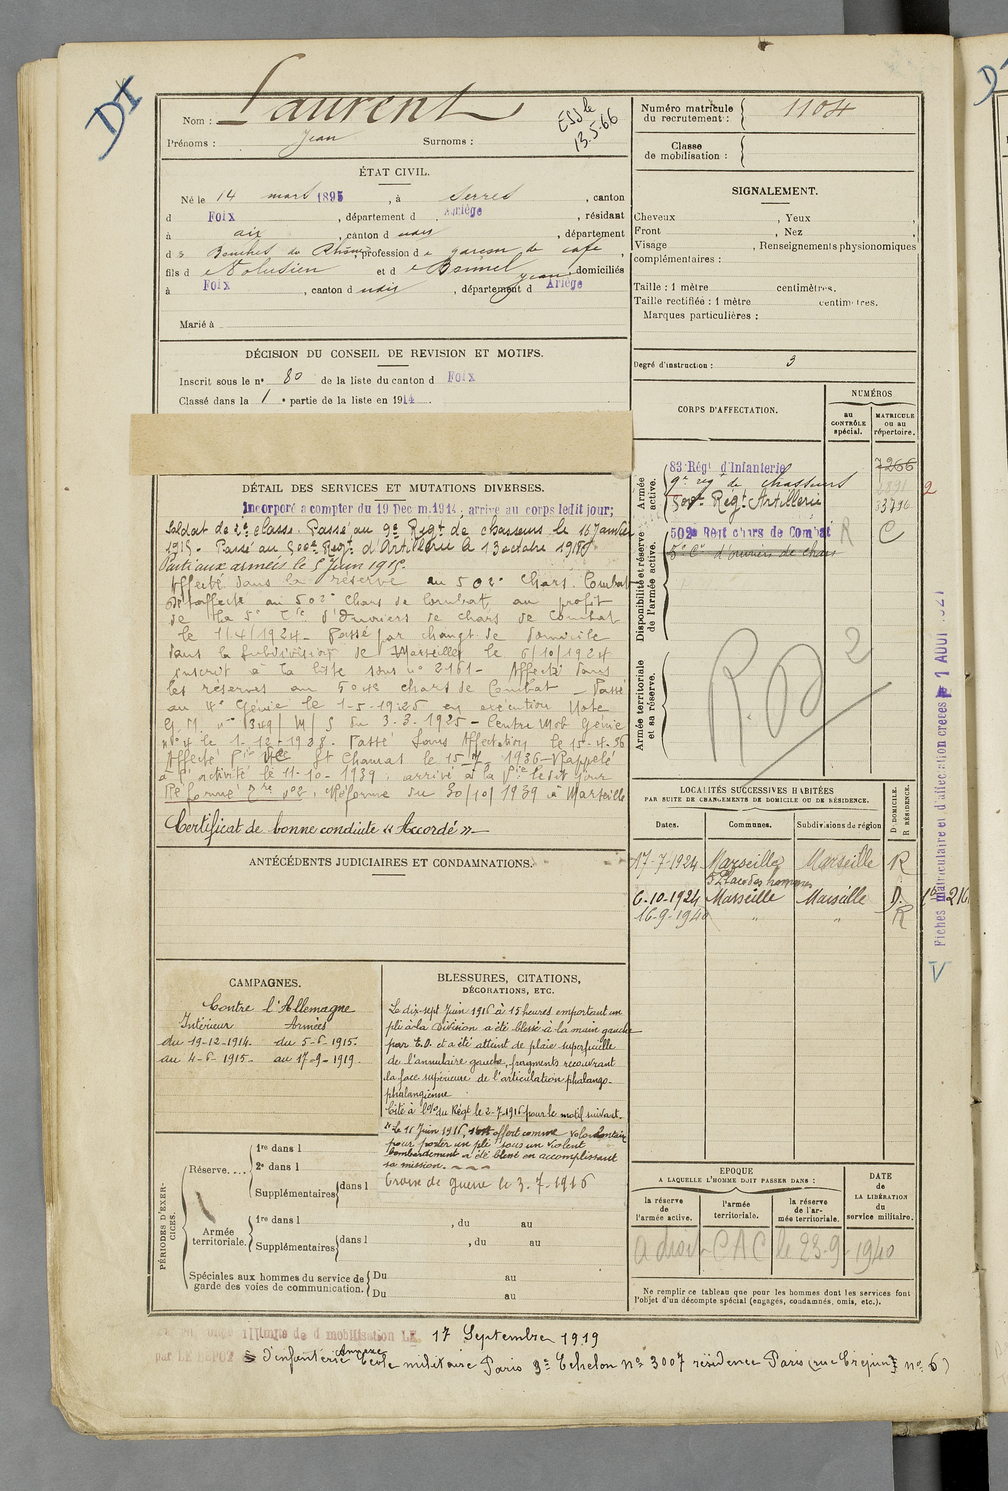 DI
Nom : Laurent
Prénoms : Jean Surnoms :
13.5.66
ÉTAT CIVIL.
Né le 14 mars 1895, à Serres, canton
d Foix, département d Ariège, résidant
à aix, canton d udis, département
d s Bouches du Rhône, profession d e garçon de café,
fils d e Volusien et d e Bonnel Jean, domiciliés
à Foix, canton d udis, département d Ariège
Marié à
DÉCISION DU CONSEIL DE REVISION ET MOTIFS.
Inscrit sous le n° 80 de la liste du canton d Foix
Classé dans la 1 e partie de la liste en 1914.
DÉTAIL DES SERVICES ET MUTATIONS DIVERSES.
Incorporé a compter du 19 Décem. 1914, arrivé au corps ledit jour;
Soldat de 2e classe. Passé au 9e Régt de chasseurs le 16 Janvier
1915. Passé au 500e Régt d'Artillerie le 13 octobre 1918
Parti aux armées le 5 Juin 1915.
Affecté dans la réserve au 502e Chars Combat
Réaffecté au 502e Chars de Combat, au profit
de la 5e Cie d'Ouvriers de chars de Combat
le 11/4/1924 - Passé par changt de domicile
dans la subdivision de Marseille le 6/10/1924
inscrit à la liste sous n° 2161 - Affecté dans
les réserves au 504e chars de Combat - Passé
au 4e Génie le 1-5-1925 en exécution Note
E.M. n° 1349/M/S du 3.3.1925 - Centre Mob Génie
n° 4 le 1-12-1928. Passé Sans Affectation le 15-4-36
Affecté Pie St Chamas le 15-7-1936 - Rappelé
à l'activité le 11-10-1939. arrivé à la Pie ledit jour
Réformé n°2, Réforme du 30/10/1939 à Marseille
Certificat de bonne conduite « Accordé »
ANTÉCÉDENTS JUDICIAIRES ET CONDAMNATIONS.
CAMPAGNES.
Contre l'Allemagne
Intérieur Armées
du 19-12-1914. du 5-6-1915.
au 4-6-1915. au 17-9-1919.
BLESSURES, CITATIONS,
DÉCORATIONS, ETC.
Le dix-sept Juin 1916 à 15 heures emportant un
pli à la Division a été blessé à la main gauche
par E.O. et a été atteint de plaie superficielle
de l'annulaire gauche, fragments recouvrant
la face supérieure de l'articulation phalango-
phalangienne
Cité à l'O/ du Régt le 2-7-1916 pour le motif suivant.
"Le 16 Juin 1916, s'est offert comme volontaire
pour porter un pli sous un violent
bombardement a été blessé en accomplissant
sa mission.
Croix de guerre le 3-7-1916
PÉRIODES D'EXERCICES.
Réserve....
1re dans l
2e dans l
Supplémentaires dans l
Armée territoriale.
1re dans l , du au
Supplémentaires dans l , du au
Spéciales aux hommes du service de garde des voies de communication.
Du au
Du au
Numéro matricule du recrutement : 1104
Classe de mobilisation :
SIGNALEMENT.
Cheveux , Yeux ,
Front , Nez ,
Visage , Renseignements physionomiques
complémentaires :
Taille : 1 mètre centimètres.
Taille rectifiée : 1 mètre centimètres.
Marques particulières :
Degré d'instruction : 3
CORPS D'AFFECTATION.
NUMÉROS
au CONTRÔLE spécial.
MATRICULE OU au répertoire.
Armée active.
83e Régt d'Infanterie 7266
9e rég de chasseurs 2
500e Régt Artillerie 33796
Disponibilité et réserve de l'armée active.
502e Regt chars de Combat R C
5e Cie d'ouvriers de chars
Armée territoriale et sa réserve.
R.D 2
LOCALITÉS SUCCESSIVES HABITÉES
PAR SUITE DE CHANGEMENTS DE DOMICILE OU DE RÉSIDENCE.
Dates. Communes. Subdivisions de région
D. DOMICILE. R. RÉSIDENCE.
17-7-1924 Marseille Marseille R
6-10-1924 Marseille Marseille D.
16-9-1940 " " R
Fiches matriculaire et d'affectation créées le 1 AOUT 1921
V
EPOQUE
A LAQUELLE L'HOMME DOIT PASSER DANS :
la réserve de l'armée active.
l'armée territoriale.
la réserve de l'armée territoriale.
DATE de LA LIBÉRATION du service militaire.
a droit CAC le 23-9-1940
Ne remplir ce tableau que pour les hommes dont les services font
l'objet d'un décompte spécial (engagés, condamnés, omis, etc.).
illimité de démobilisation LE 17 Septembre 1919
par LE DEPOT d'infanterie Annexe Ecole militaire Paris 3e Echelon n° 3007 résidence Paris (rue n° 6)